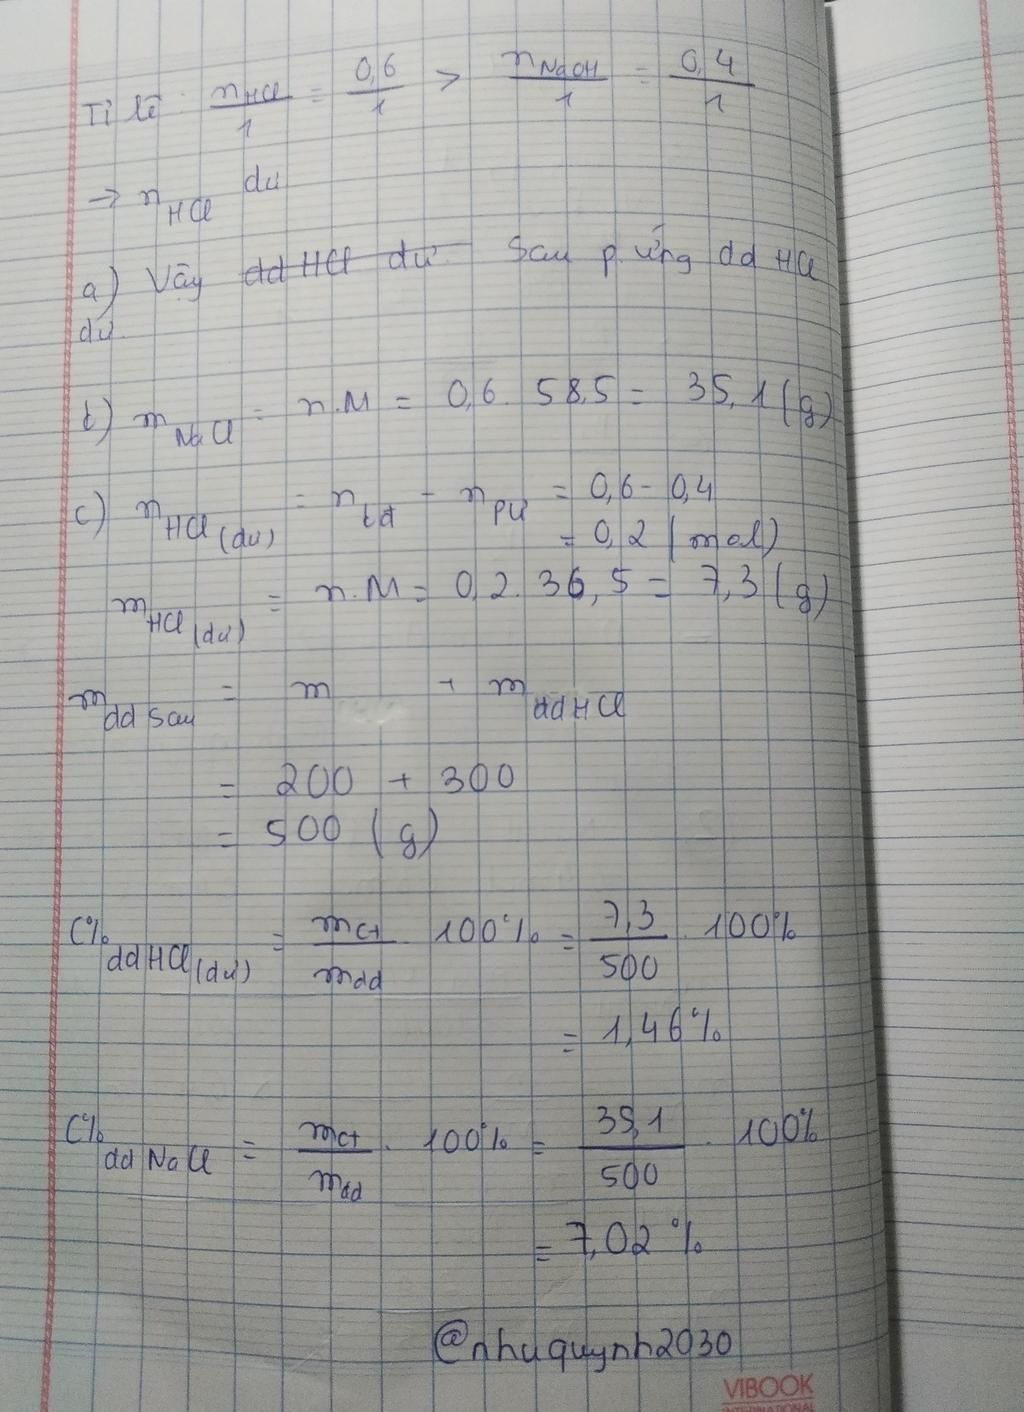 Tỉ lệ: nHCl/1 = 0,6/1 > nNaOH/1 = 0,4/1
→ nHCl dư
a) Vậy dd HCl dư Sau p.ứng dd HCl
dư.
b) mNaCl = n.M = 0,6. 58,5 = 35,1 (g)
c) nHCl (dư) = nbđ - nPƯ = 0,6 - 0,4
= 0,2 (mol)
mHCl (dư) = n.M = 0,2. 36,5 = 7,3 (g)
mdd sau = m + mddHCl
= 200 + 300
= 500 (g)
C% ddHCl(dư) = mct/mdd . 100% = 7,3/500 . 100%
= 1,46%
C% ddNaCl = mct/mdd . 100% = 35,1/500 . 100%
= 7,02%
@nhuquynh2030
VIBOOK
INTERNATIONAL